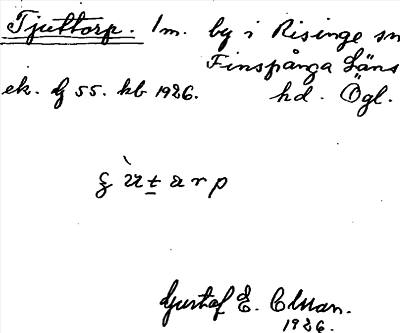 Tjuttorp. 1 m. by i Risinge sn
Finspånga Läns
ek. bf 55. kb 1926. hd. Ögl.
Gustaf E. Clsson.
1926.